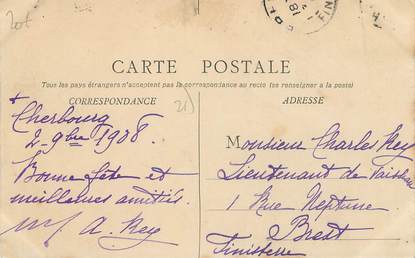 CARTE POSTALE
Tous les pays étrangers n'acceptent pas la correspondance au recto (se renseigner à la poste)
CORRESPONDANCE
ADRESSE
21
Cherbourg
2 9bre 1908
Bonne fête et
meilleures amitiés.
A. Rey
Monsieur Charles Rey
Lieutenant de Vaisseau
1 Rue Neptune
Brest
Finistère
FIN